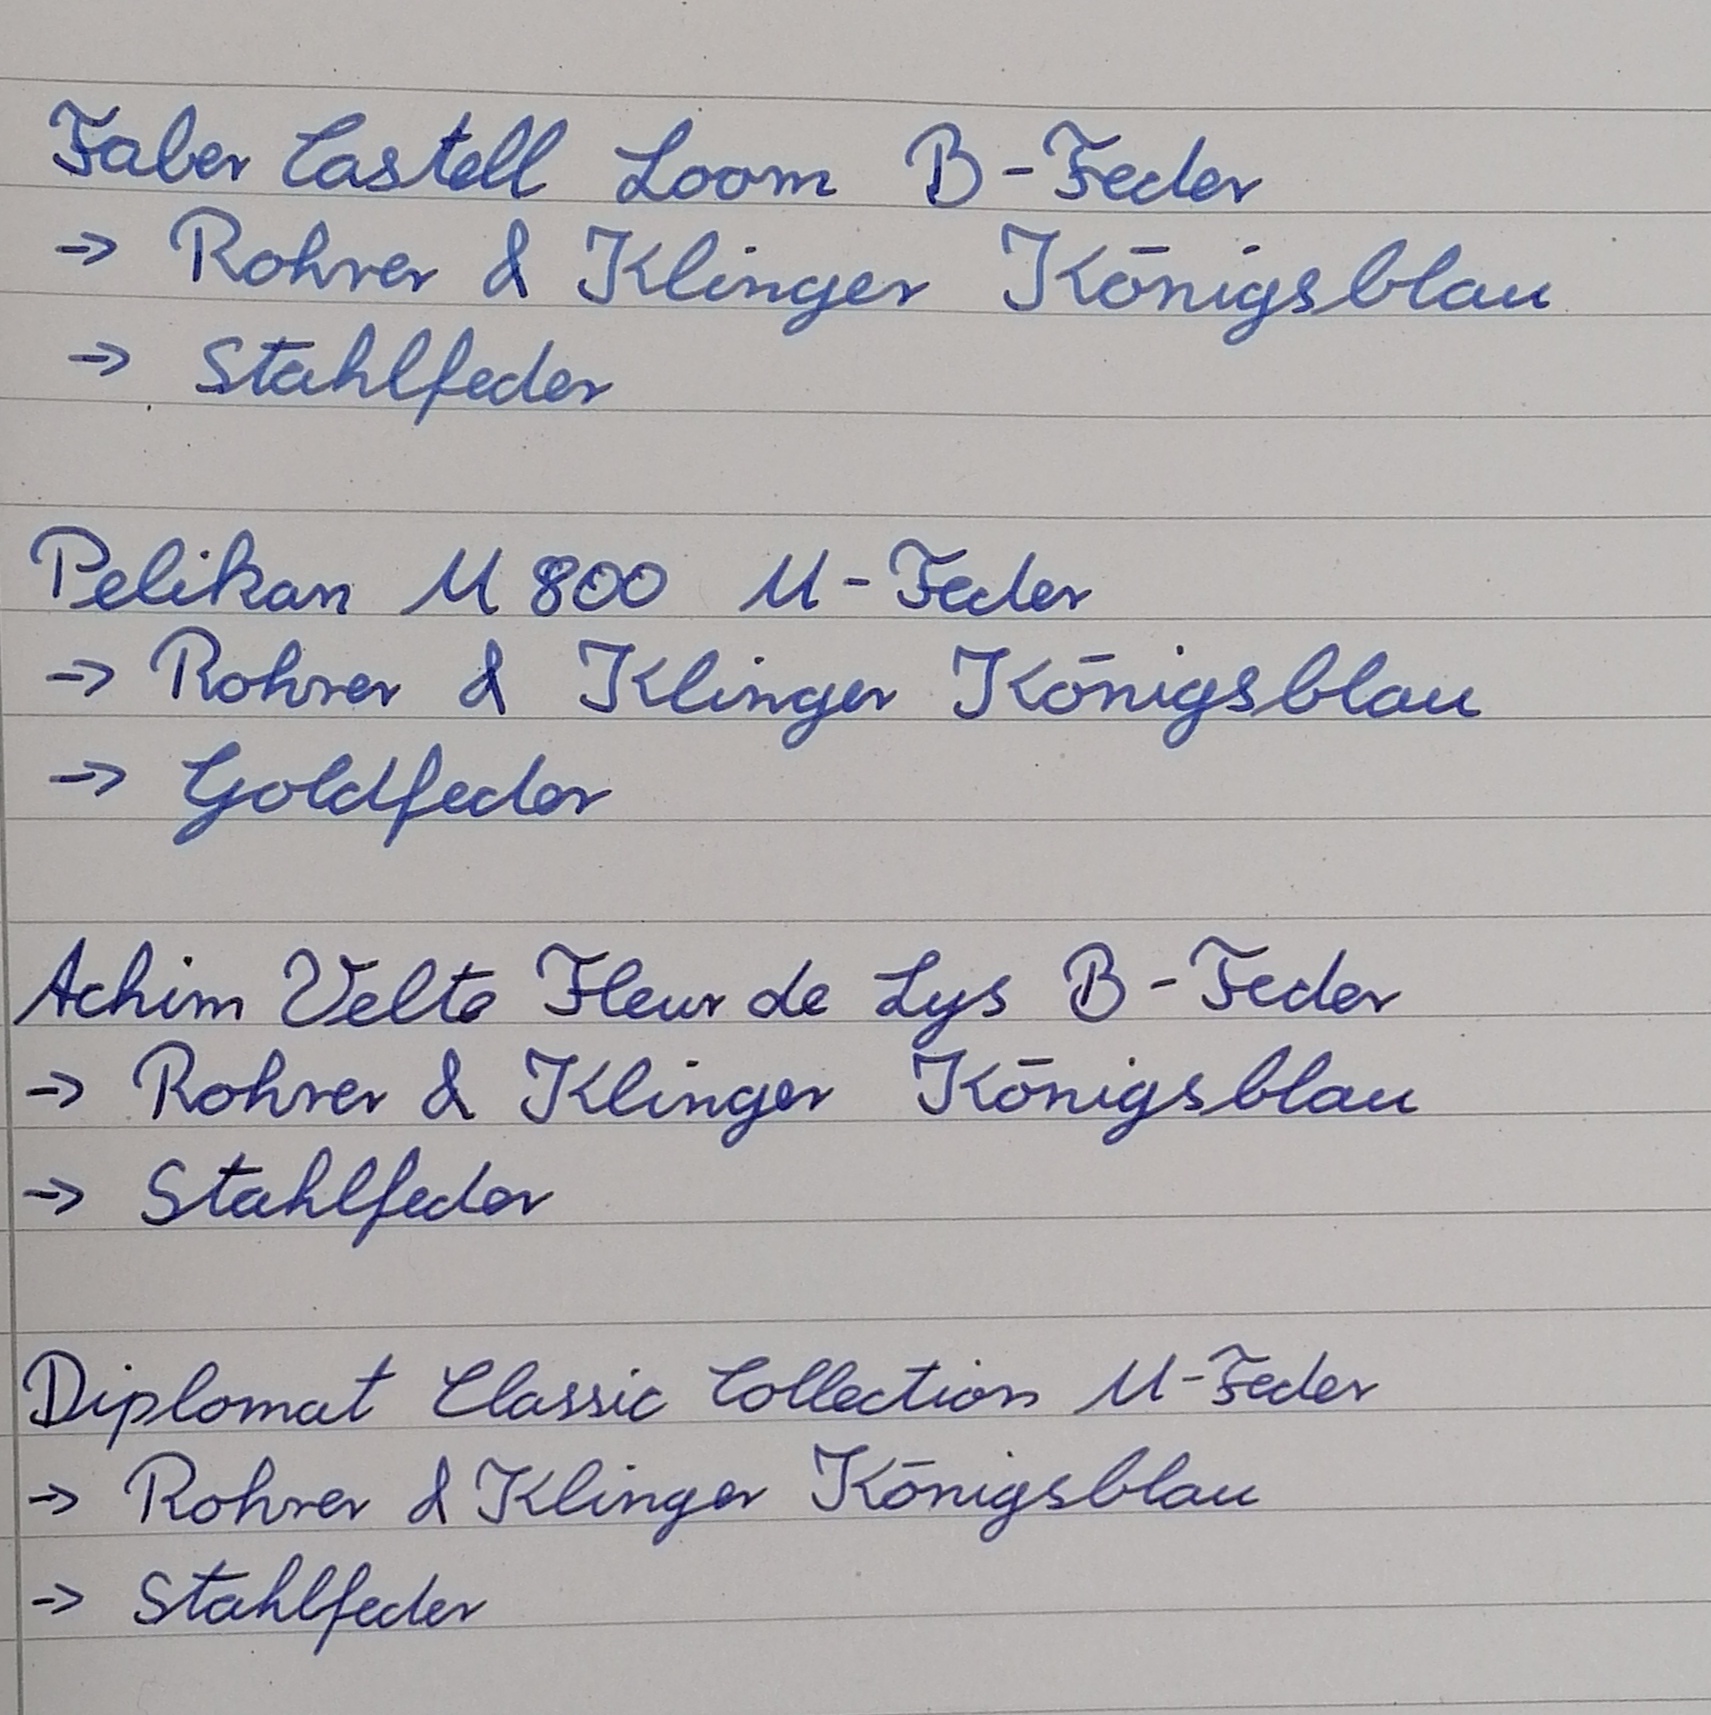 Faber Castell Loom B-Feder
→ Rohrer & Klinger Königsblau
→ Stahlfeder
Pelikan M800 M-Feder
→ Rohrer & Klinger Königsblau
→ Goldfeder
Achim Velte Fleur de Lys B-Feder
→ Rohrer & Klinger Königsblau
→ Stahlfeder
Diplomat Classic Collection M-Feder
→ Rohrer & Klinger Königsblau
→ Stahlfeder